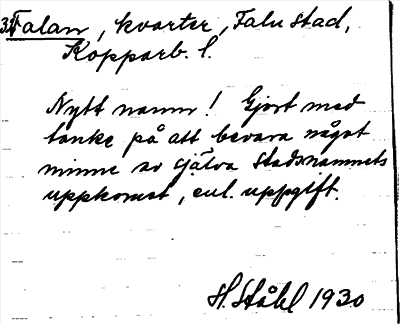 34 Falan, kvarter, Falu stad,
Kopparb. l.
Nytt namn! Gjort med
tanke på att bevara något
minne av själva stadsnamnets
uppkomst, enl. uppgift.
H. Ståhl 1930